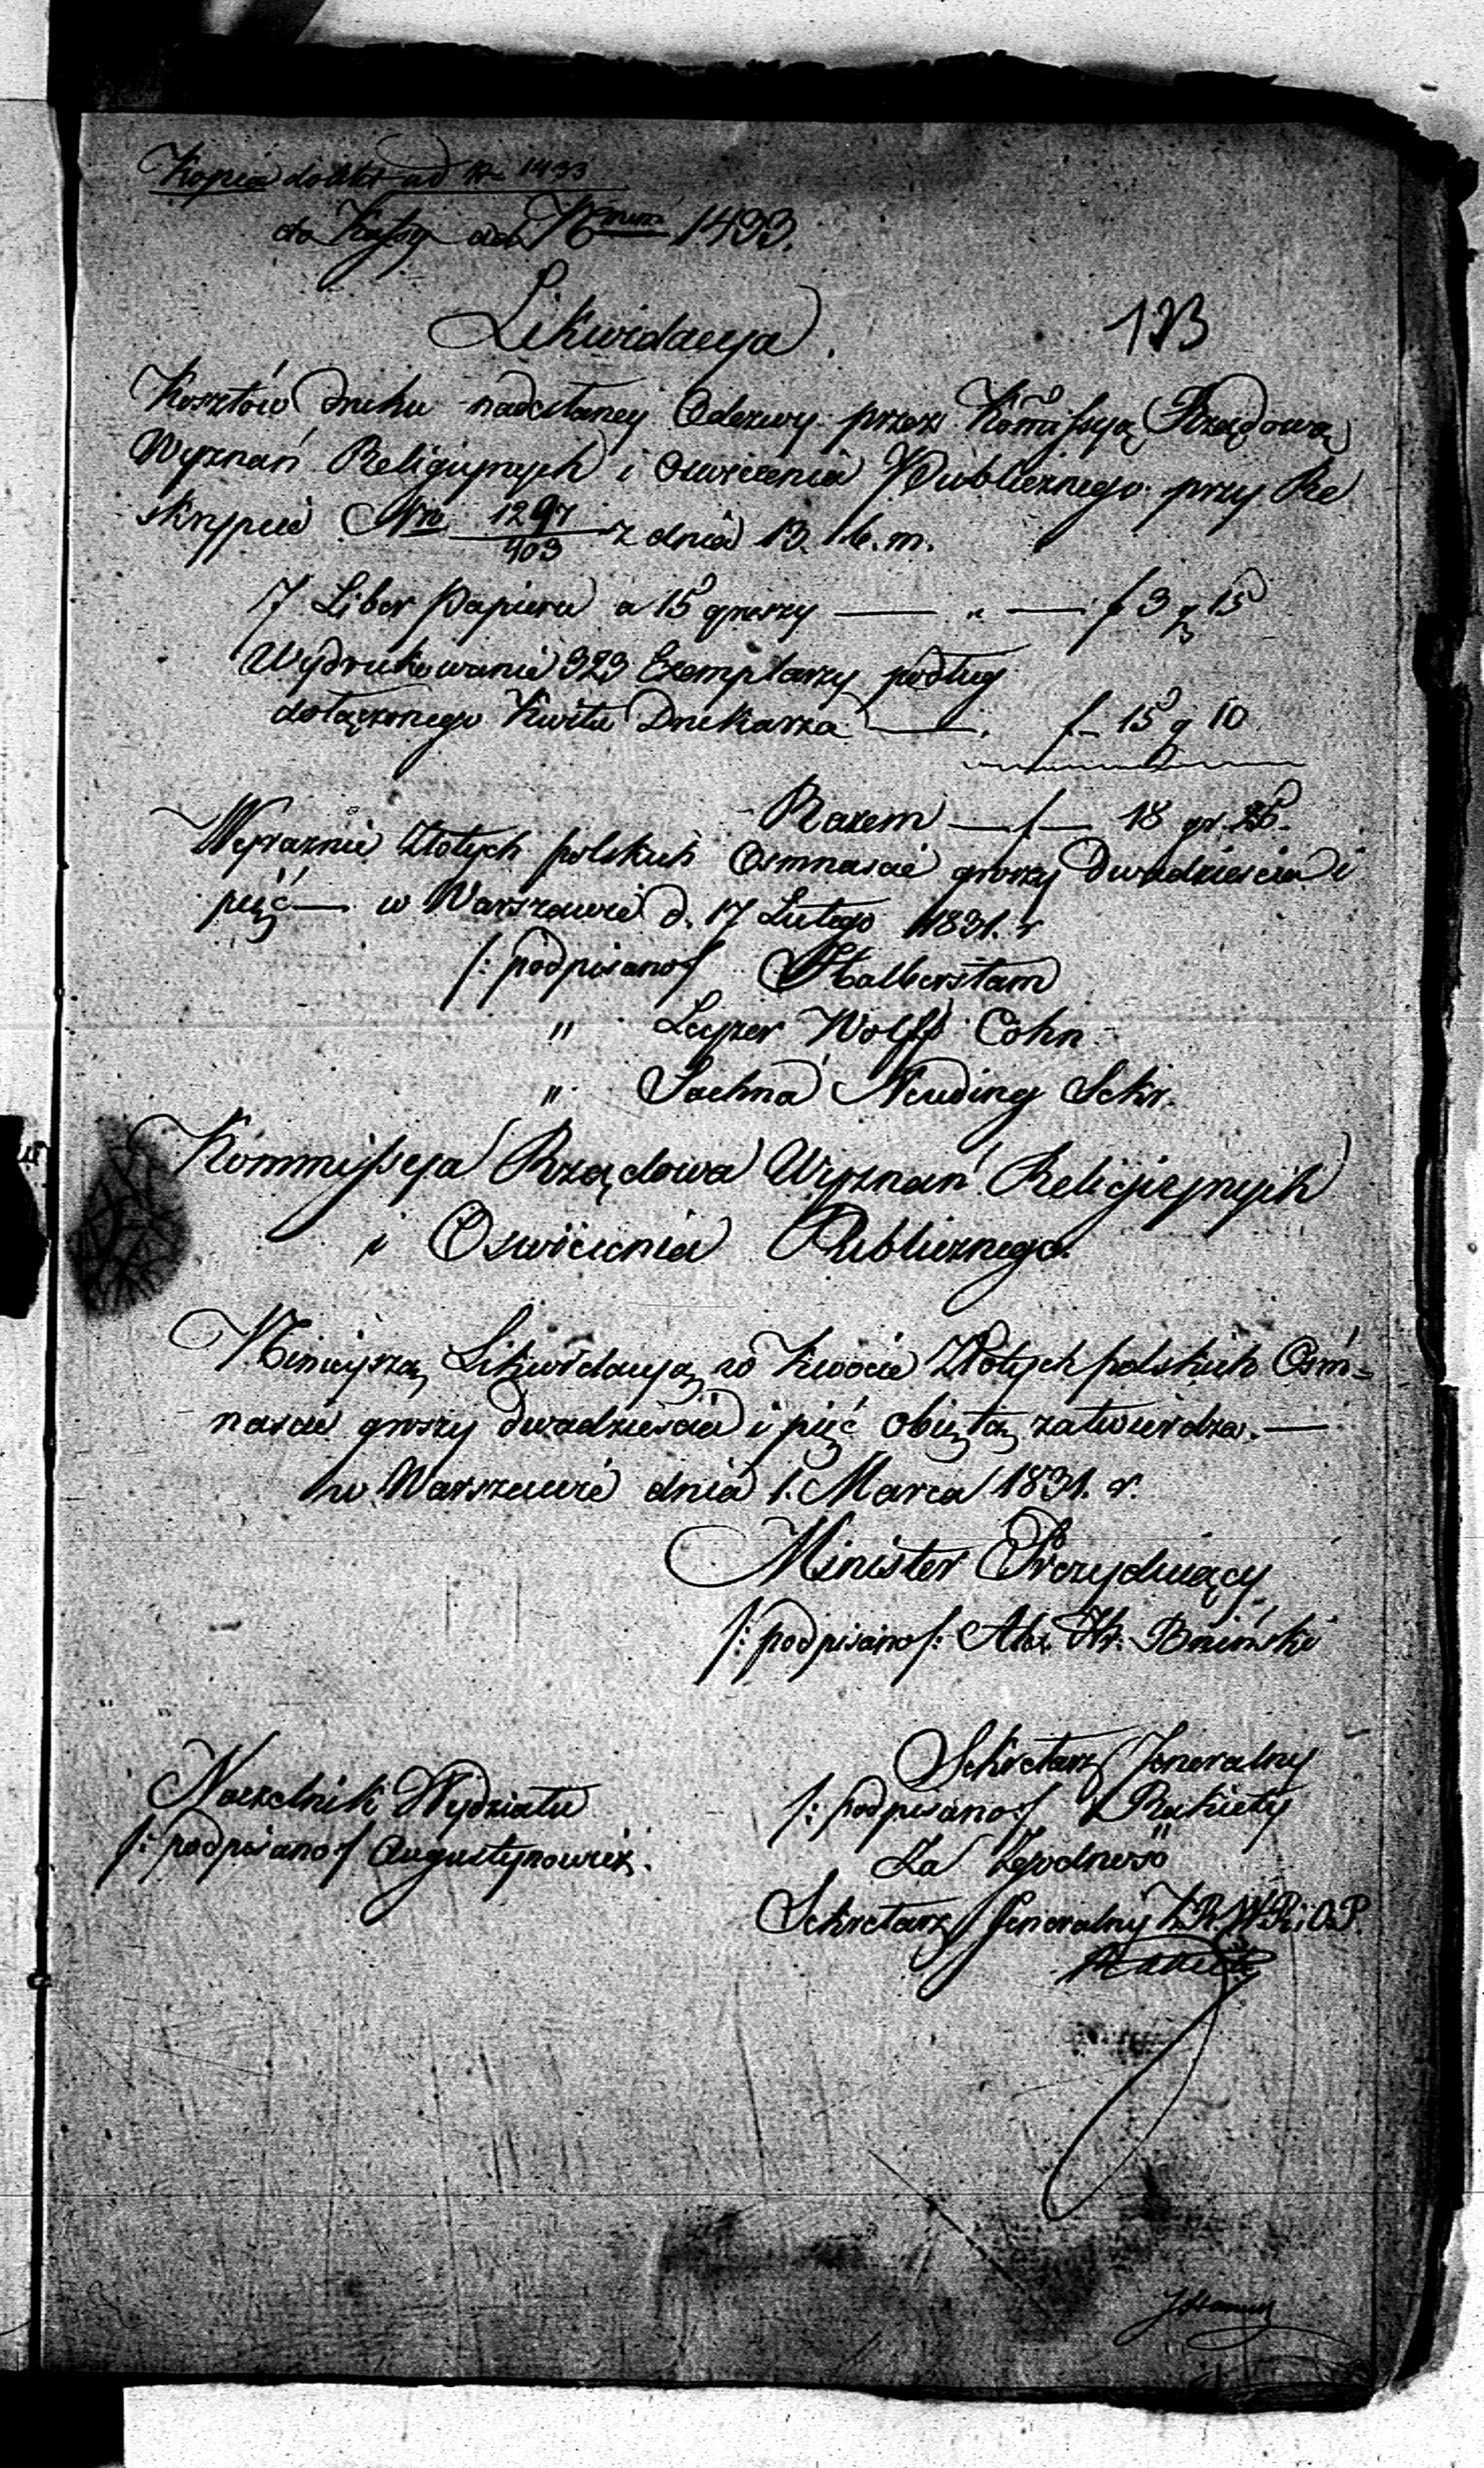 Kopia do Akt ad N 1433
do Kassy ad Num 1433.
Likwidacya.
123
Kosztów druku nadesłaney Odezwy przez Kommissyą Rządową
Wyznań Religijnych i Oświecenia Publicznego przy Re
skrypcie Nro 1297/403 z dnia 13. b. m.
7 Liber Papieru a 15 groszy — " — f 3 g 15
Wydrukowanie 323 Exemplarzy podług
dołączonego Kwitu Drukarza — . f — 15 g 10
Razem — f — 18 gr. 25.
Wyraznie Złotych polskich Osmnascie groszy Dwadziescia i
pięć — w Warszawie d. 17 Lutego 1831. r
/: podpisano/ Halberstam
" Layzer Wolff Cohn
" Sachna Neuding Sekr.
Kommissya Rządowa Wyznań Religijnych
i Oswiecenia Publicznego.
Ninieyszą Likwidacyą w kwocie Złotych polskich Ośm-
nascie groszy dwadziescia i pięć obiętą zatwierdza. —
w Warszawie dnia 1. Marca 1831. r.
Minister Prezyduiący
/: podpisano/: Alex. Hr. Bniński
Sekretarz Jeneralny
/: podpisano/ Rakiety
Naczelnik Wydziału
/: podpisano/ Augustynowicz.
Za Zgodność
Sekretarz Jeneralny K. R. W. R. i O. P.
Rakiety